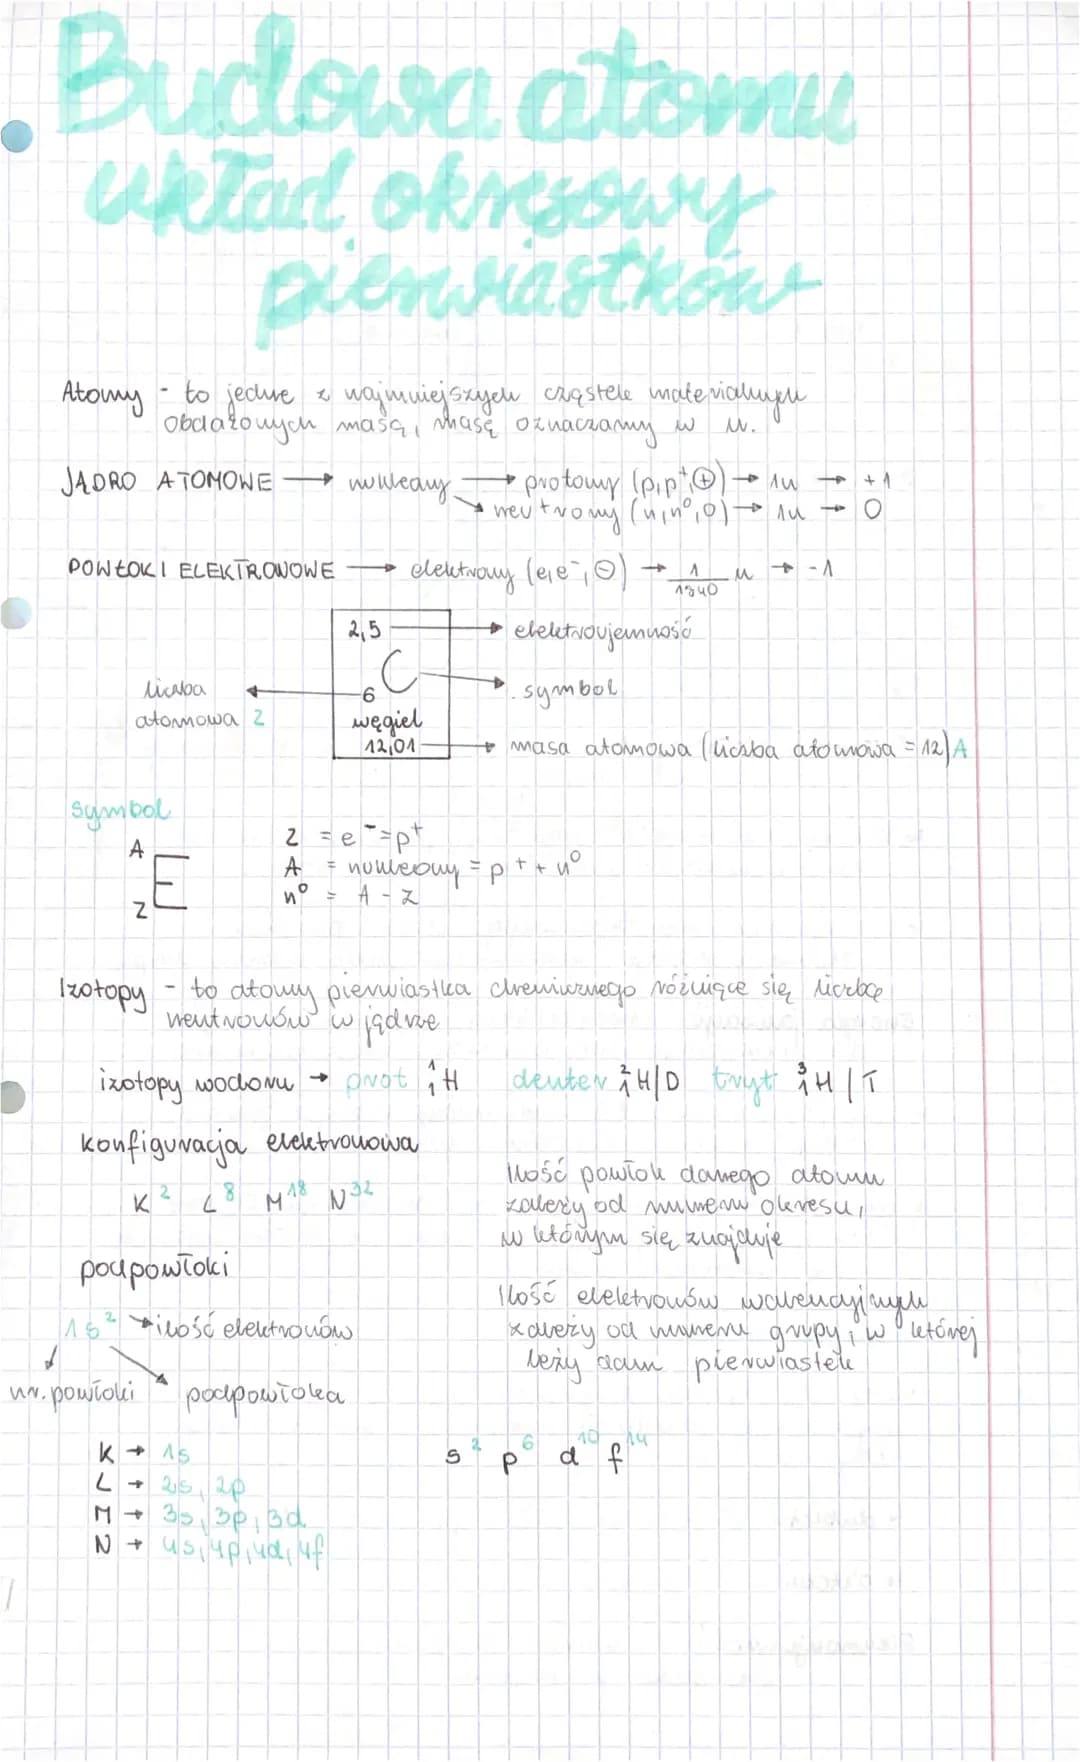 Budowa atomu
układ okresowy
pierwiastków
Atomy - to jedne z najmniejszych cząstek materialnych
obdażonych masą, masę oznaczamy w u.
JĄDRO ATOMOWE → nukleony → protony (p,p⁺,⊕) → 1u → +1
→ neutrony (n,n⁰,0) → 1u → 0
POWŁOKI ELEKTRONOWE → elektrony (e,e⁻,⊖) → 1/1840 u → -1
2,5 → elektroujemność
C → symbol
liczba atomowa Z ← 6
węgiel
12,01 → masa atomowa (liczba atomowa = 12) A
symbol
A
E
Z
Z = e⁻ = p⁺
A = nukleony = p⁺ + n⁰
n⁰ = A - Z
Izotopy - to atomy pierwiastka chemicznego różniące się liczbą
neutronów w jądrze
izotopy wodoru → prot ¹₁H deuter ²₁H/D tryt ³₁H/T
konfiguracja elektronowa
K² L⁸ M¹⁸ N³²
Ilość powłok danego atomu
zależy od numeru okresu,
w którym się znajduje
podpowłoki
1s² → ilość elektronów
nr. powłoki podpowłoka
Ilość elektronów walencyjnych
zależy od numeru grupy, w której
leży dam pierwiastek
K → 1s
L → 2s, 2p
M → 3s, 3p, 3d
N → 4s, 4p, 4d, 4f
s² p⁶ d¹⁰ f¹⁴